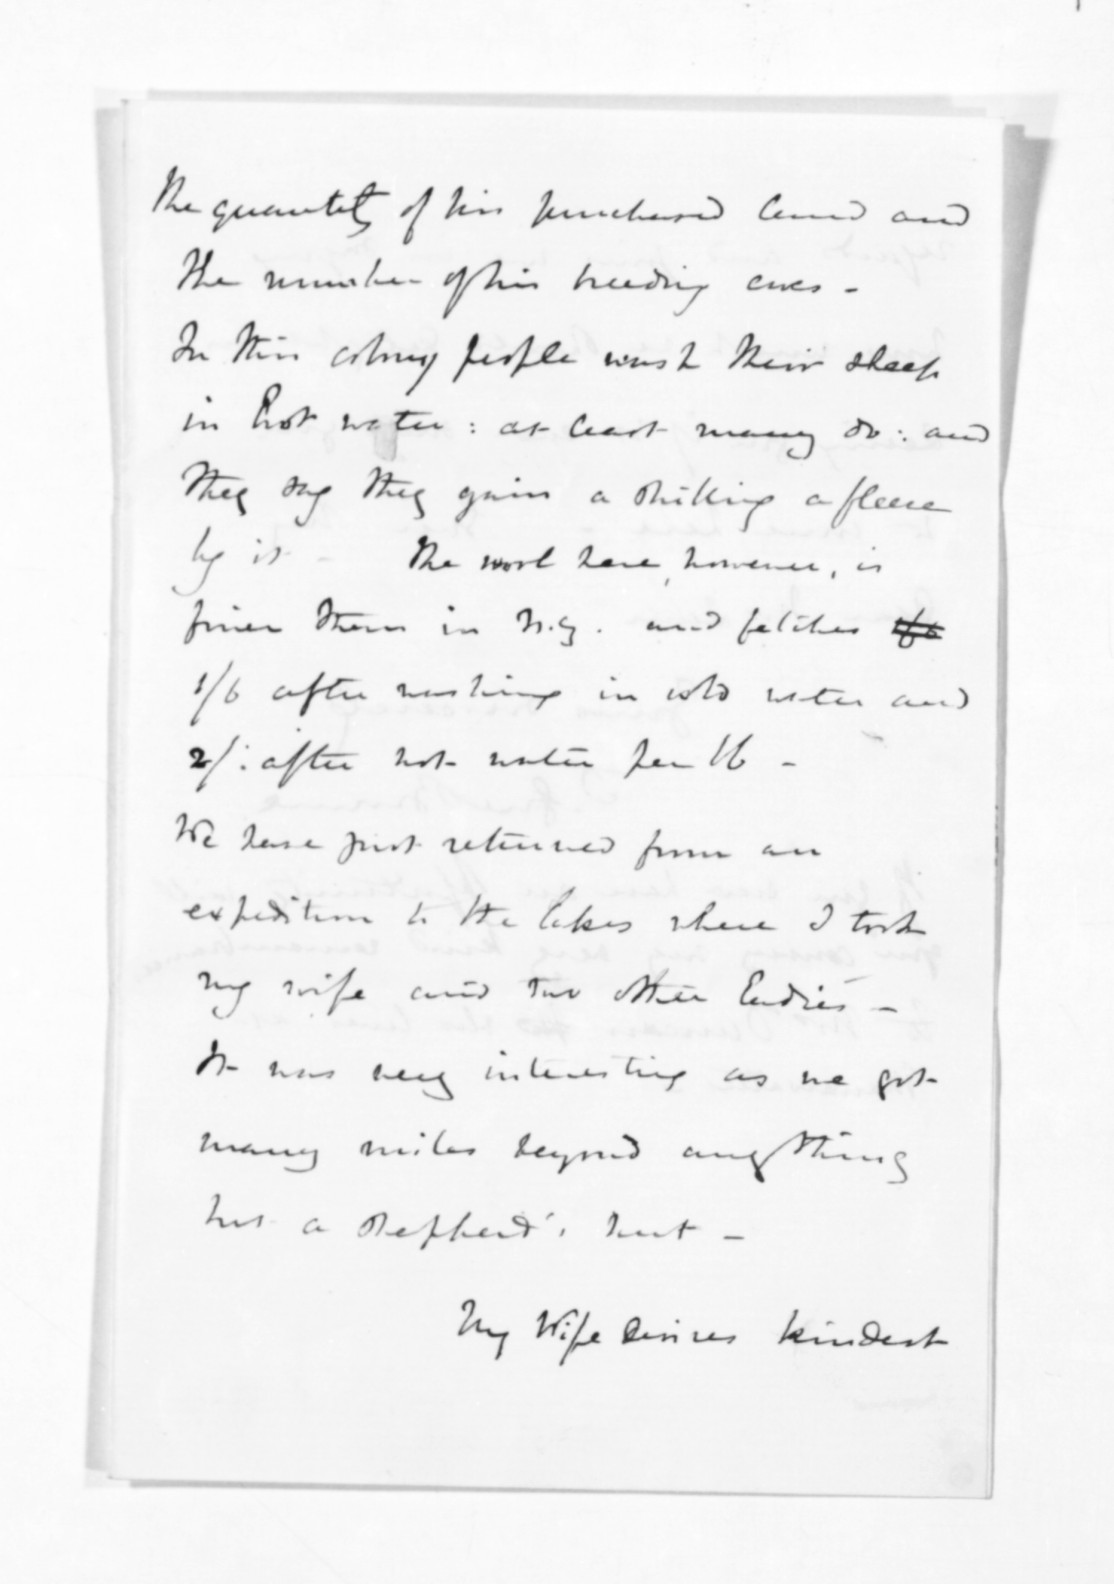 the quantity of his purchased land and
the number of his breeding ewes -
In this colony people wash their sheep
in hot water : at least many do : and
they say they gain a shilling a fleece
by it - The wool here, however, is
finer than in N.Z. and fetches
1/6 after washing in cold water and
2/: after hot water per lb -
We have just returned from an
expedition to the lakes where I took
my wife and two other Ladies -
It was very interesting as we got
many miles beyond anything
but a Shepherd's hut -
My Wife desires kindest